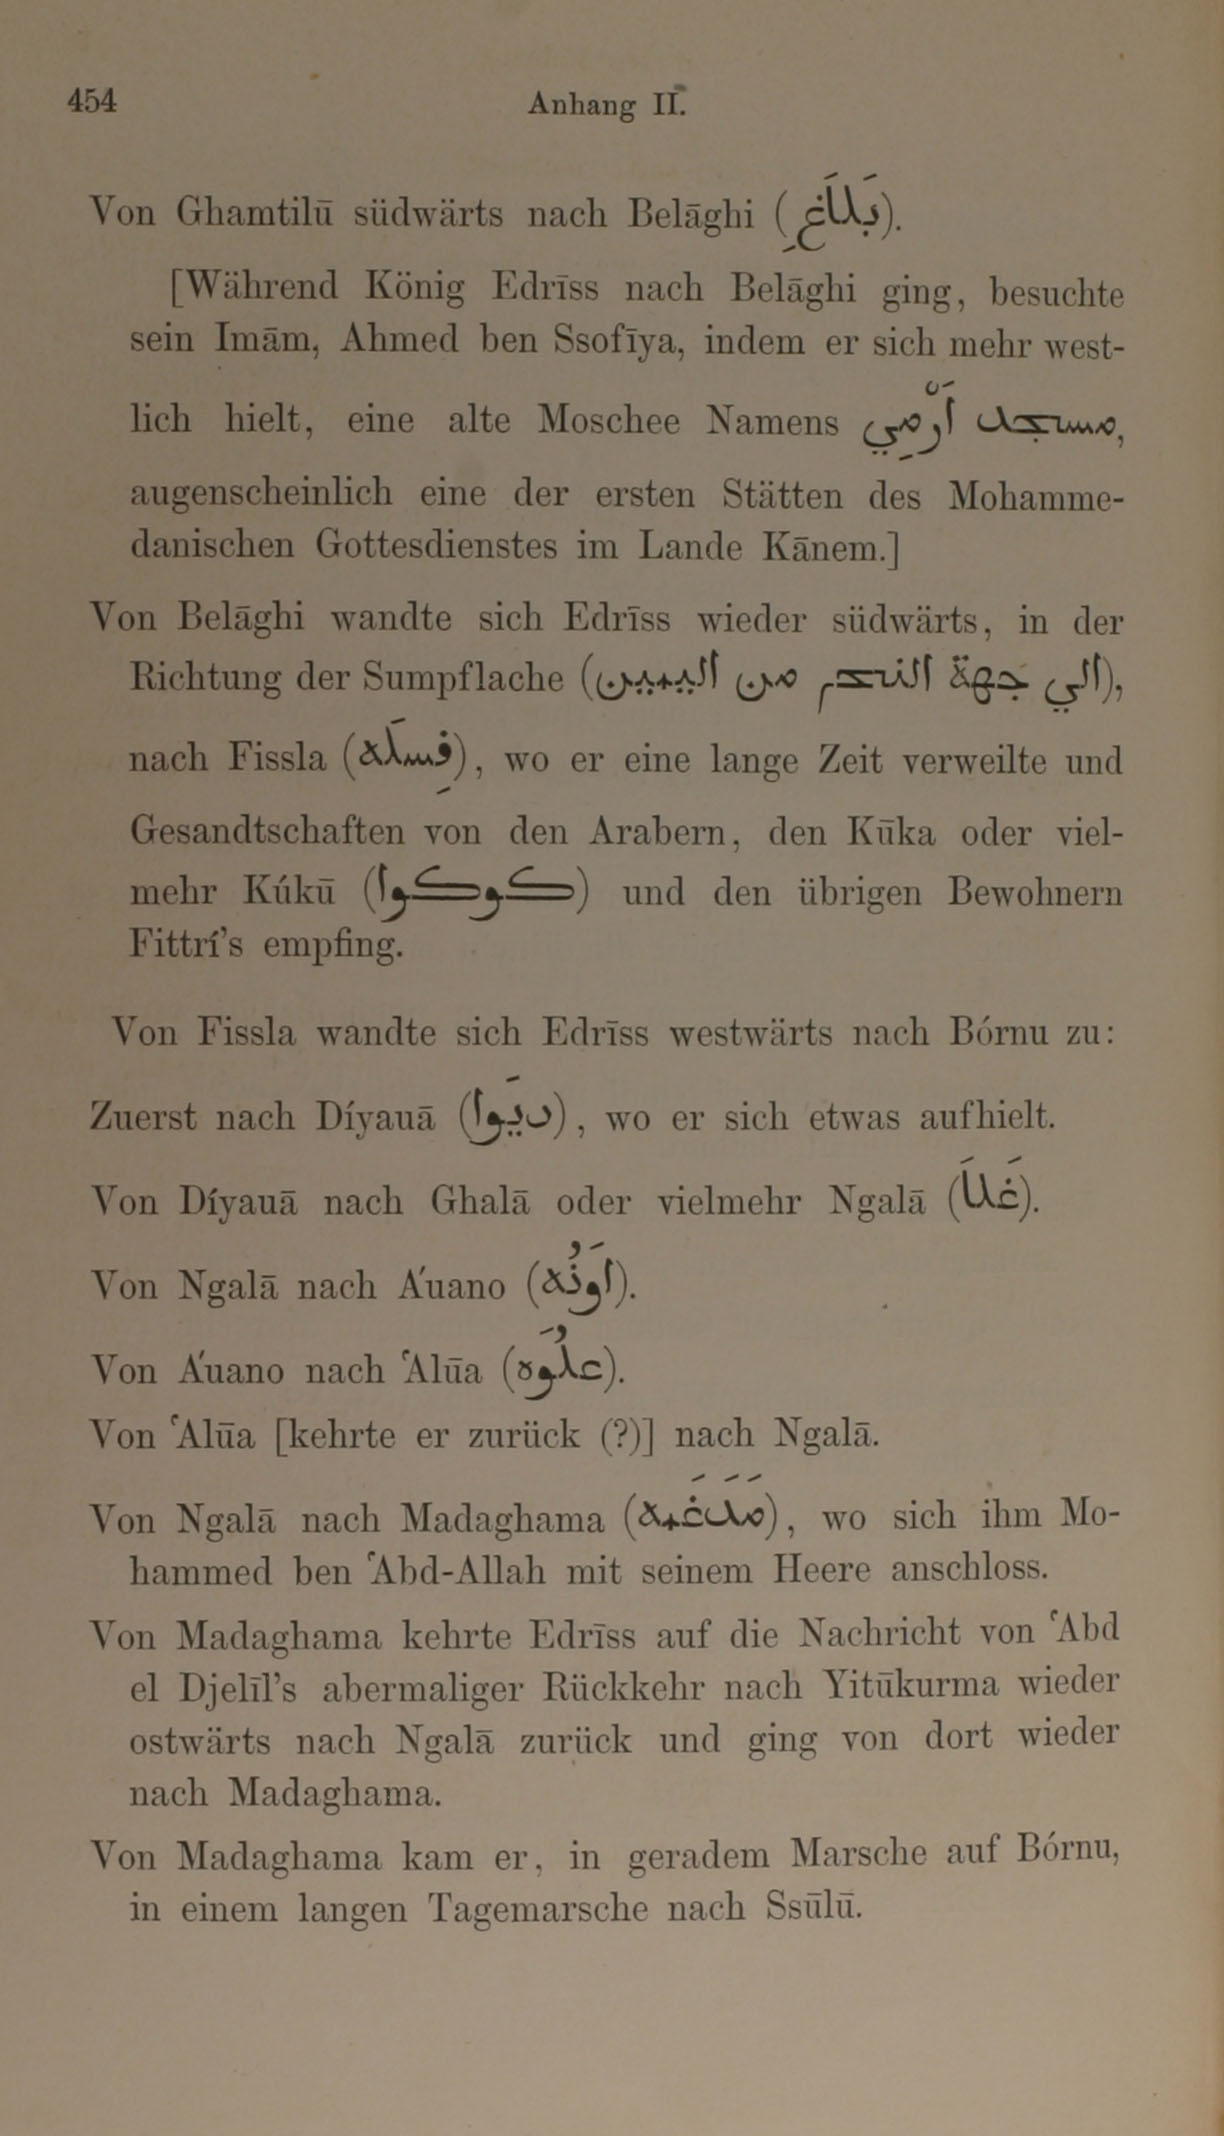 454 Anhang II.
Von Ghamtilū südwärts nach Belāghi (بَلَاغِ).
[Während König Edrīss nach Belāghi ging, besuchte
sein Imām, Ahmed ben Ssofīya, indem er sich mehr west-
lich hielt, eine alte Moschee Namens مسجد
augenscheinlich eine der ersten Stätten des Mohamme-
danischen Gottesdienstes im Lande Kānem.]
Von Belāghi wandte sich Edrīss wieder südwärts, in der
Richtung der Sumpflache (الي جهة من اليمين),
nach Fissla (فِسلَة), wo er eine lange Zeit verweilte und
Gesandtschaften von den Arabern, den Kūka oder viel-
mehr Kúkū (كوكوا) und den übrigen Bewohnern
Fittrí's empfing.
Von Fissla wandte sich Edrīss westwärts nach Bórnu zu:
Zuerst nach Díyauā (ديَوا), wo er sich etwas aufhielt.
Von Díyauā nach Ghalā oder vielmehr Ngalā (غَلَا).
Von Ngalā nach Áuano (اَونُه).
Von Áuano nach ʿAlūa (علُوَه).
Von ʿAlūa [kehrte er zurück (?)] nach Ngalā.
Von Ngalā nach Madaghama (مَدَغَمة), wo sich ihm Mo-
hammed ben ʿAbd-Allah mit seinem Heere anschloss.
Von Madaghama kehrte Edrīss auf die Nachricht von ʿAbd
el Djelīl's abermaliger Rückkehr nach Yitūkurma wieder
ostwärts nach Ngalā zurück und ging von dort wieder
nach Madaghama.
Von Madaghama kam er, in geradem Marsche auf Bórnu,
in einem langen Tagemarsche nach Ssūlū.